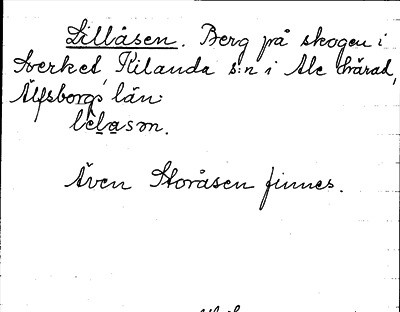 Lillåsen. Berg på skogen i
Sverket, Kilanda s:n i Ale härad,
Älfsborgs län:
lėlasɷn.
Även Storåsen finnes.